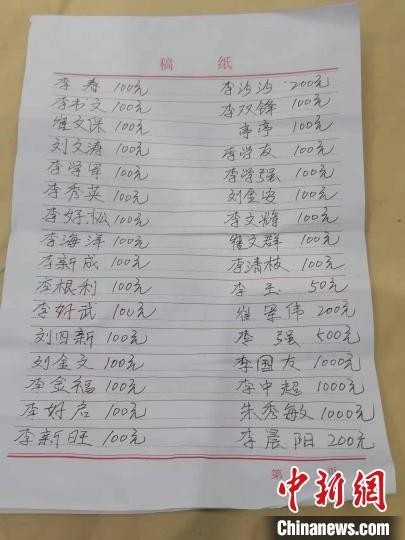 稿 纸
李春 100元 李沙沙 200元
李书文 100元 李双锋 100元
崔文保 100元 亭亭 100元
刘文涛 100元 李学友 100元
李学军 100元 李学强 100元
李秀英 100元 刘金安 100元
李好松 100元 李文辉 100元
李海洋 100元 崔文群 100元
李新成 100元 李清枝 100元
李根利 100元 李玉 50元
李好武 100元 崔军伟 200元
刘四新 100元 李强 500元
刘金文 100元 李国友 1000元
李金福 100元 李中超 1000元
李好启 100元 朱秀敏 1000元
李新旺 100元 李晨阳 200元
第 页
中新网
Chinanews.com